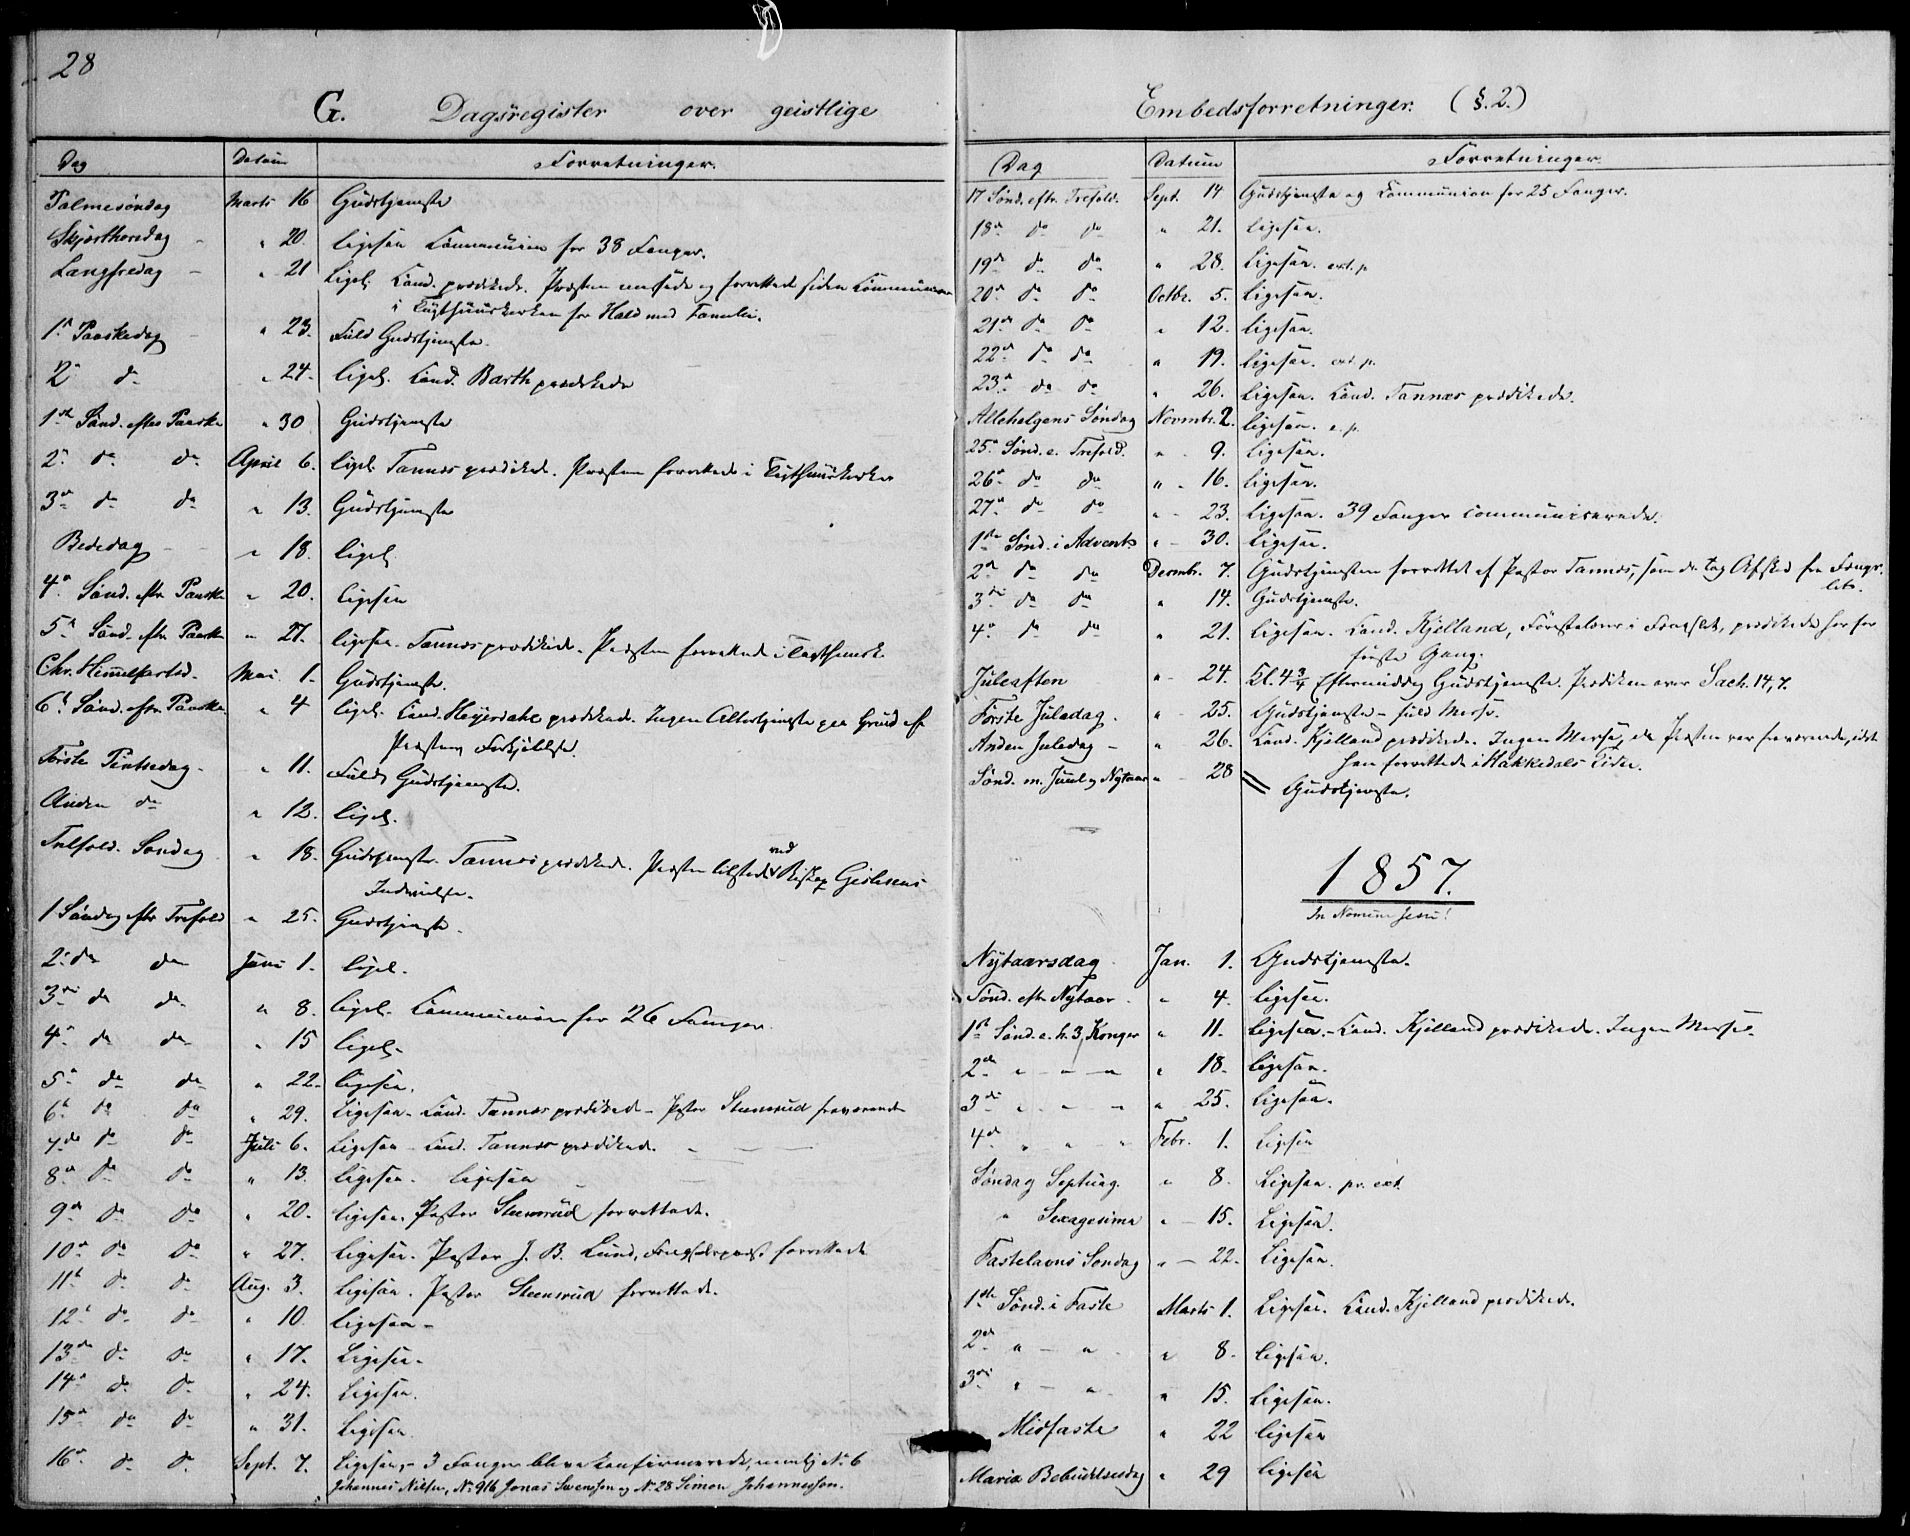 28
G. Dagsregister over geistlige
Dag Datum Forretninger.
Palmesöndag Marts 16 Gudstjeneste
Skjærthorsdag " 20. Ligesaa Communion for 38 Fanger.
Langfredag " 21 Ligel. Cand. prædikede. Præsten messede og forrettede siden Communion
i Tugthuuskirken for Hald med Familie.
1ª Paaskedag " 23. Fuld Gudstjeneste.
2ª dº " 24. Ligel. Cand. Barth prædikede
1ste Sönd. efter Paaske " 30 Gudstjeneste
2ª dº dº April 6. Ligel. Tannæs prædikede. Præsten forrettede i Tugthuuskirken
3die dº dº " 13. Gudstjeneste
Bededag " 18. Ligel.
4ª Sönd. eftr Paaske " 20. Ligesaa
5ª Sönd. eftr Paaske " 27. Ligesaa. Tannæs prædikede. Præsten forrettede i Tugthuusk.
Chr. Himmelfartsd. Mai 1. Gudstjeneste.
6ª Sönd. eftr Paaske " 4 Ligel. Cand. Heyerdahl prædikede. Ingen Altertjeneste paa Grund af
Præstens Forkjölelse.
Förste Pintsedag " 11. Fuld Gudstjeneste.
Anden dº " 12. Ligel.
Trefold. Söndag " 18. Gudstjeneste. Tannæs prædikede. Præsten tilstede ved Biskop Gislesens
Indvielse.
1 Söndag eftr Trefold " 25. Gudstjeneste.
2. dº dº Juni 1. Ligel.
3die dº dº " 8. Ligel. Communion for 26 Fanger.
4ª dº dº " 15 Ligel.
5ª dº dº " 22. Ligesaa.
6ª dº dº " 29. Ligesaa. Cand. Tannæs prædikede. Pastor Steensrud fraværende
7de dº dº Juli 6. Ligesaa Cand. Tannæs prædikede.
8ª dº dº " 13. Ligesaa. Ligesaa
9de dº dº " 20. Ligesaa. Pastor Steensrud forrettede.
10ª dº dº " 27. Ligesaa. Pastor J. B. Lund, Fængselspræst forrettede
11ª dº dº Aug. 3. Ligesaa. Pastor Steensrud forrettede.
12ª dº dº " 10. Ligesaa
13de dº dº " 17. Ligesaa.
14ª dº dº " 24. Ligesaa.
15ª dº dº " 31. Ligesaa.
16ª dº dº Sept. 7. Ligesaa, 3 Fanger bleve konfirmerede, nemlig Nº 6
Johannes Nilsen, Nº 916 Jonas Svensson og Nº 28 Simon Johannesson.
Embedsforretninger. (§.2.)
Dag Datum Forretninger.
17 Sönd. eftr. Trefold. Sept. 14 Gudstjeneste og Communion for 25 Fanger.
18ª dº dº " 21. Ligesaa.
19de dº dº " 28. Ligesaa. ext. p.
20ª dº dº Octbr. 5. Ligesaa.
21de dº dº " 12. Ligesaa.
22de dº dº " 19. Ligesaa. ext. p.
23ª dº dº " 26. Ligesaa. Cand. Tannæs prædikede.
Allehelgens Söndag Novmbr. 2. Ligesaa. e. p.
25ª Sönd. e. Trefold. " 9. Ligesaa.
26ª dº dº " 16. Ligesaa.
27ª dº dº " 23. Ligesaa. 39 Fanger communicerede.
1ste Sönd. i Advent " 30. Ligesaa.
2de dº dº Decmbr. 7. Gudstjenesten forrettet af Pastor Tannæs, som da tog Afsked fra Fængs-
let.
3die dº dº " 14. Gudstjeneste.
4ª dº dº " 21. Ligesaa. Cand. Kjelland, Forestalærer i Fængslet, prædikede her for
förste Gang.
Juleaften " 24. Kl. 4 3/4 Eftermiddag Gudstjeneste. Prædiken over Sach. 14,7.
Förste Juledag. " 25. Gudstjeneste - fuld Messe.
Anden Juledag " 26. Cand. Kjelland prædikede. Ingen Messe, da Præsten var fraværende, idet
han forrettede i Hakkedals Kirke.
Sönd. m. Juul og Nytaar " 28 Gudstjeneste.
1857.
In Nomine Jesu!
Nytaarsdag Jan. 1. Gudstjeneste.
Sönd. eftr Nytaar " 4. Ligesaa.
1ste Sönd. e. h. 3 Konger " 11. Ligesaa. - Cand. Kjelland prædikede. Ingen Messe.
2de " " " " 18. Ligesaa.
3die " " " " 25. Ligesaa.
4de " " " Febr. 1. Ligesaa
Söndag Septuag. " 8. Ligesaa. pr. ext.
" Sexagesima " 15. Ligesaa.
Fastelavns Söndag " 22. Ligesaa.
1ste Sönd. i Faste Marts 1. Ligesaa. Cand. Kjelland prædikede.
2de " " " 8. Ligesaa.
3die " " " 15. Ligesaa.
Midfaste " 22 Ligesaa
Mariæ Bebudelsesdag " 29 Ligesaa